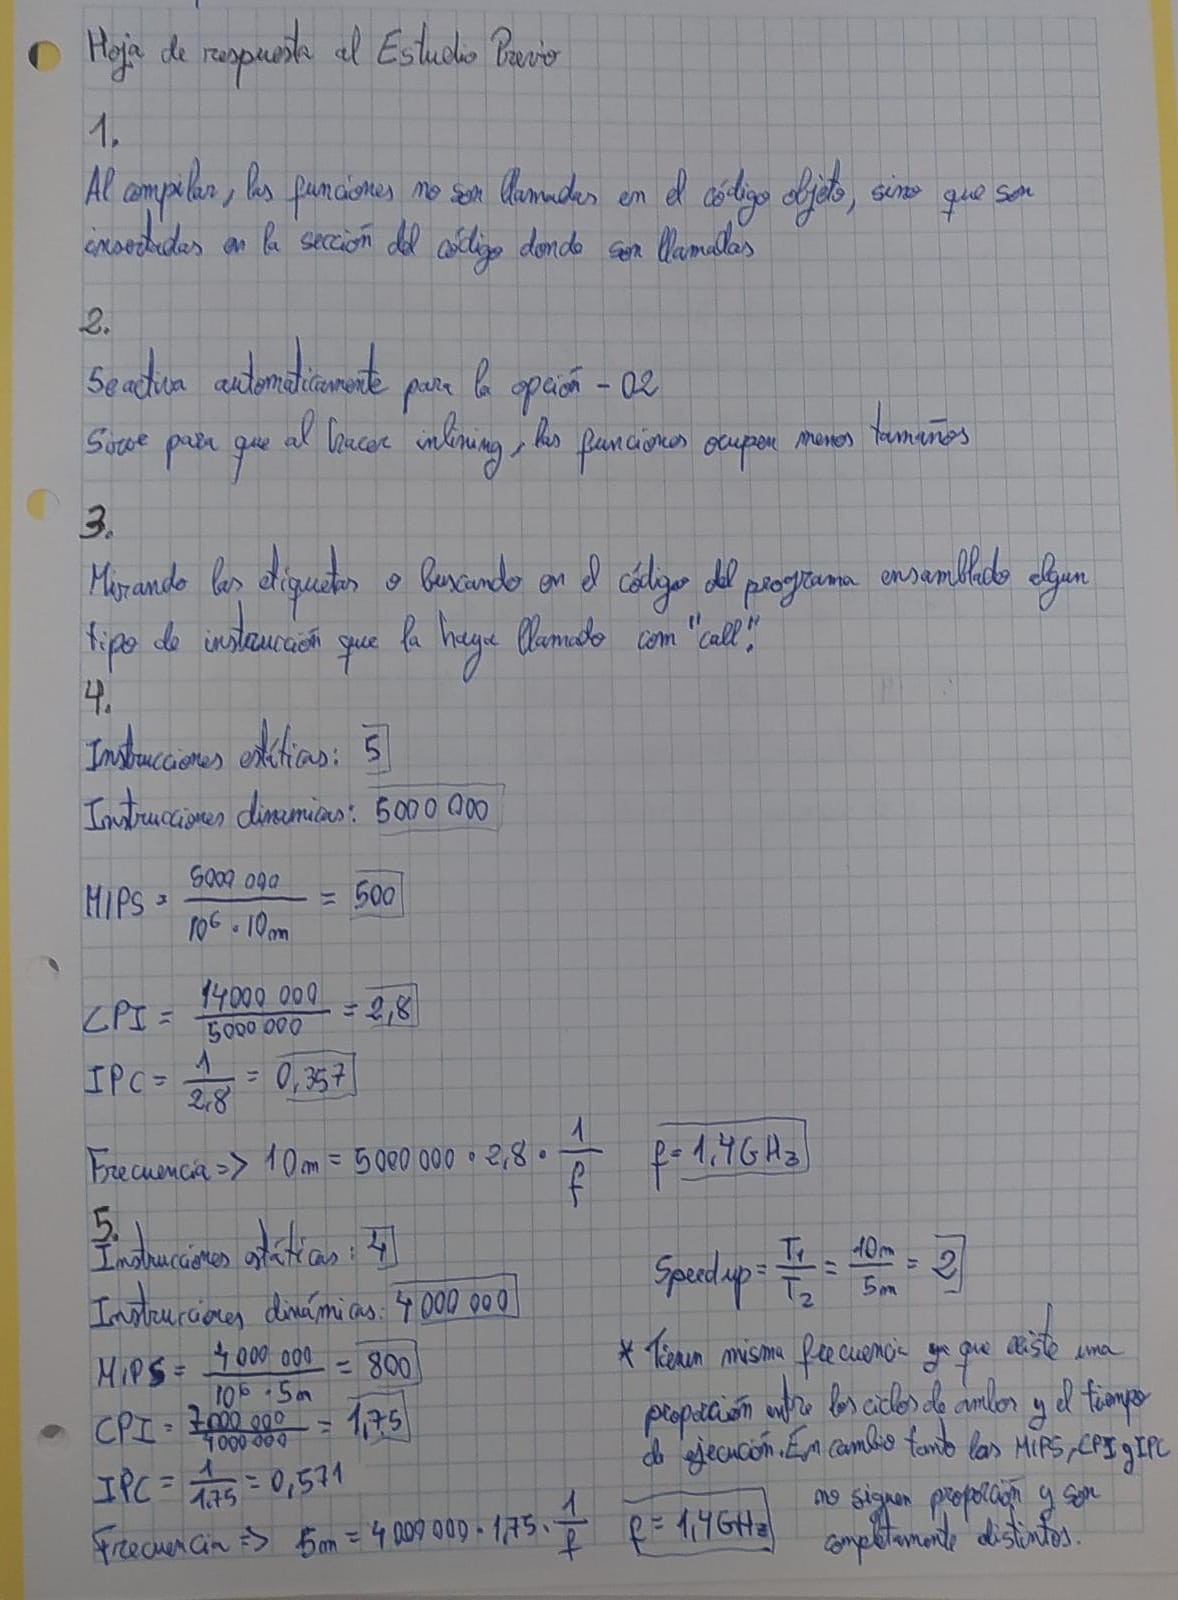 Hoja de respuesta al Estudio Previo
1.
Al compilar, las funciones no son llamadas en el código objeto, sino que son
insertadas en la sección del código donde son llamadas
2.
Se activa automaticamente para la opción -O2
Sirve para que al hacer inlining, las funciones ocupen menos tamaños
3.
Mirando las etiquetas o buscando en el código del programa ensamblado algun
tipo de instrucción que la haya llamado com "call".
4.
Instrucciones estáticas: 5
Instrucciones dinamicas: 5000 000
MIPS = 5000 000 / 10^6 · 10m = 500
CPI = 14000 000 / 5000 000 = 2,8
IPC = 1 / 2,8 = 0,357
Frecuencia => 10m = 5000 000 · 2,8 · 1 / f f = 1,4GHz
5.
Instrucciones estáticas: 4
Instrucciones dinámicas: 4 000 000
MIPS = 4 000 000 / 10^6 · 5m = 800
CPI = 7000 000 / 4000 000 = 1,75
IPC = 1 / 1,75 = 0,571
Frecuencia => 5m = 4 000 000 · 1,75 · 1 / f f = 1,4GHz
Speedup = T1 / T2 = 10m / 5m = 2
* Tienen misma frecuencia ya que existe una
proporción entre los ciclos de ambos y el tiempo
de ejecución. En cambio tanto las MIPS, CPI y IPC
no siguen proporción y son
completamente distintos.